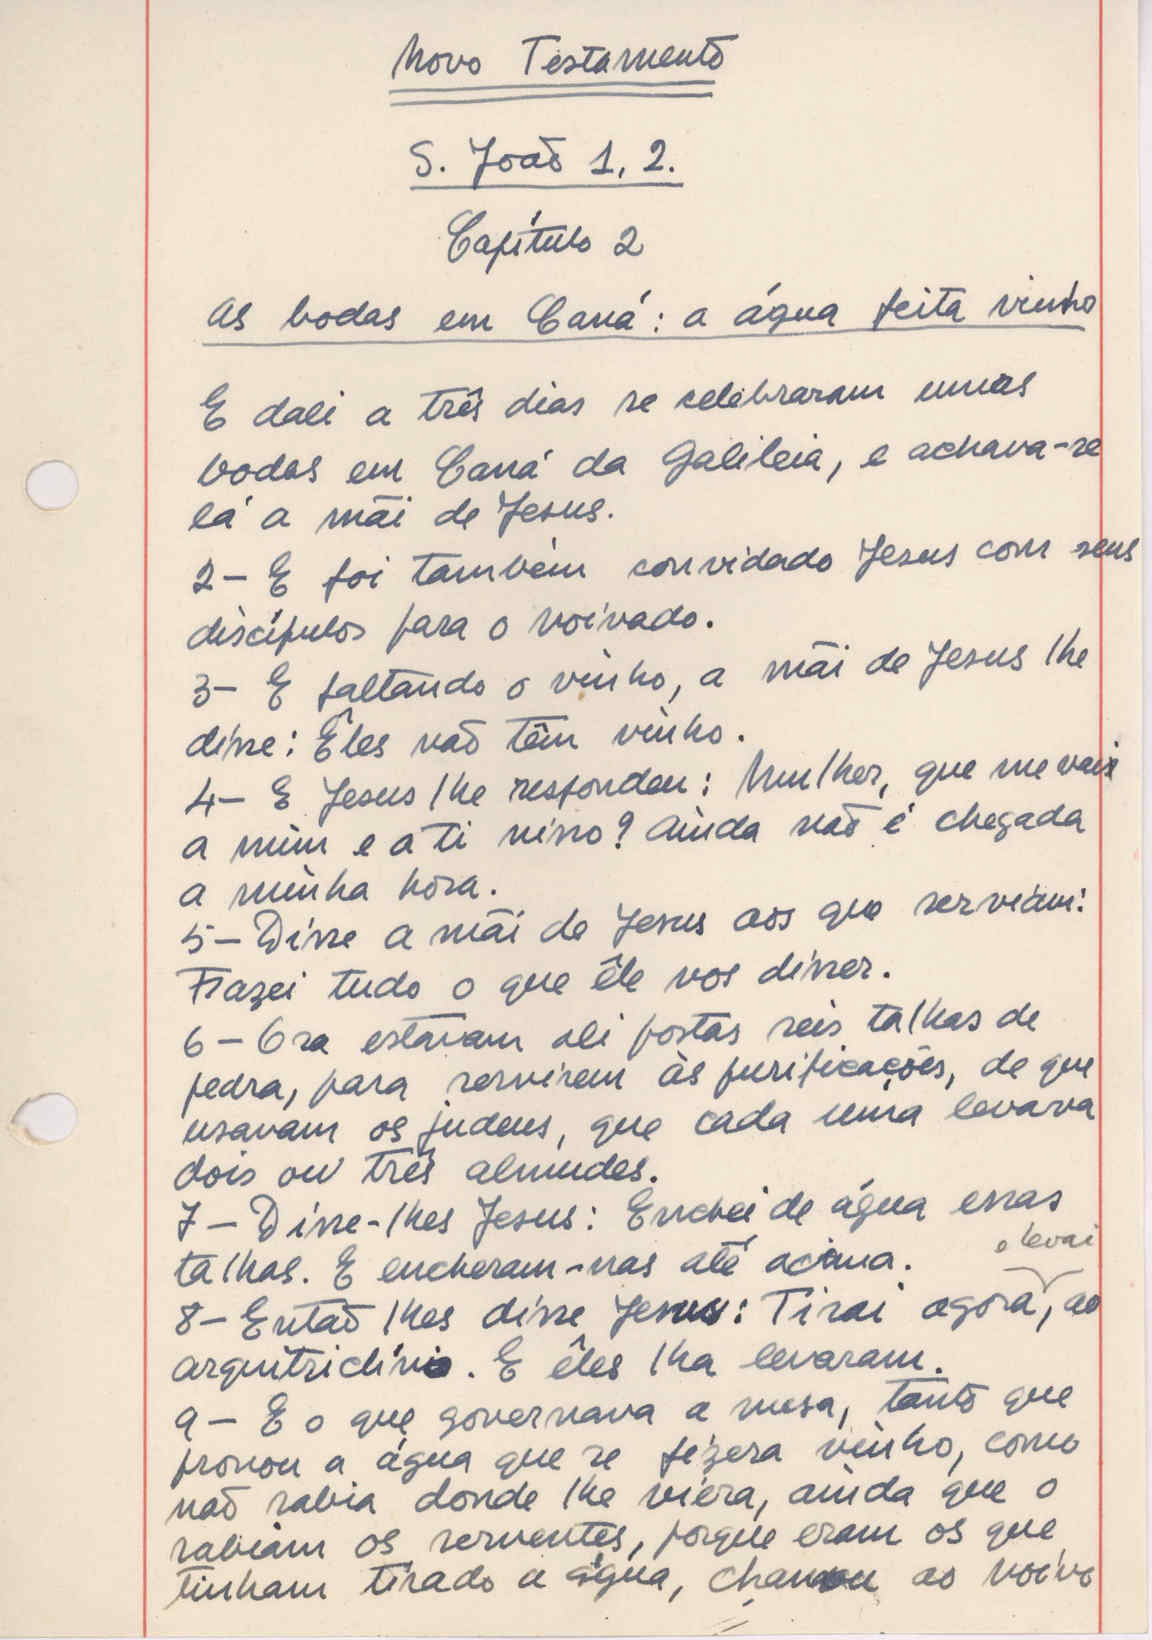 Novo Testamento
S. João 1, 2.
Capítulo 2
As bodas em Caná: a água feita vinho
E dali a três dias se celebraram umas
bodas em Caná da Galileia, e achava-se
lá a mãi de Jesus.
2- E foi também convidado Jesus com seus
discípulos para o noivado.
3- E faltando o vinho, a mãi de Jesus lhe
disse: Êles não têm vinho.
4- E Jesus lhe respondeu: Mulher, que me vais
a mim e a ti nisso? Ainda não é chegada
a minha hora.
5- Disse a mãi de Jesus aos que serviam:
Fazei tudo o que êle vos disser.
6- Ora estavam ali postas seis talhas de
pedra, para servirem às purificações, de que
usavam os judeus, que cada uma levava
dois ou três almudes.
7- Disse-lhes Jesus: Enchei de água essas
talhas. E encheram-nas até acima.
e levai
8- Então lhes disse Jesus: Tirai agora, ao
arquitriclínio. E êles lha levaram.
9- E o que governava a mesa, tanto que
provou a água que se fizera vinho, como
não sabia donde lhe viera, ainda que o
sabiam os serventes, porque eram os que
tinham tirado a água, chamou ao noivo